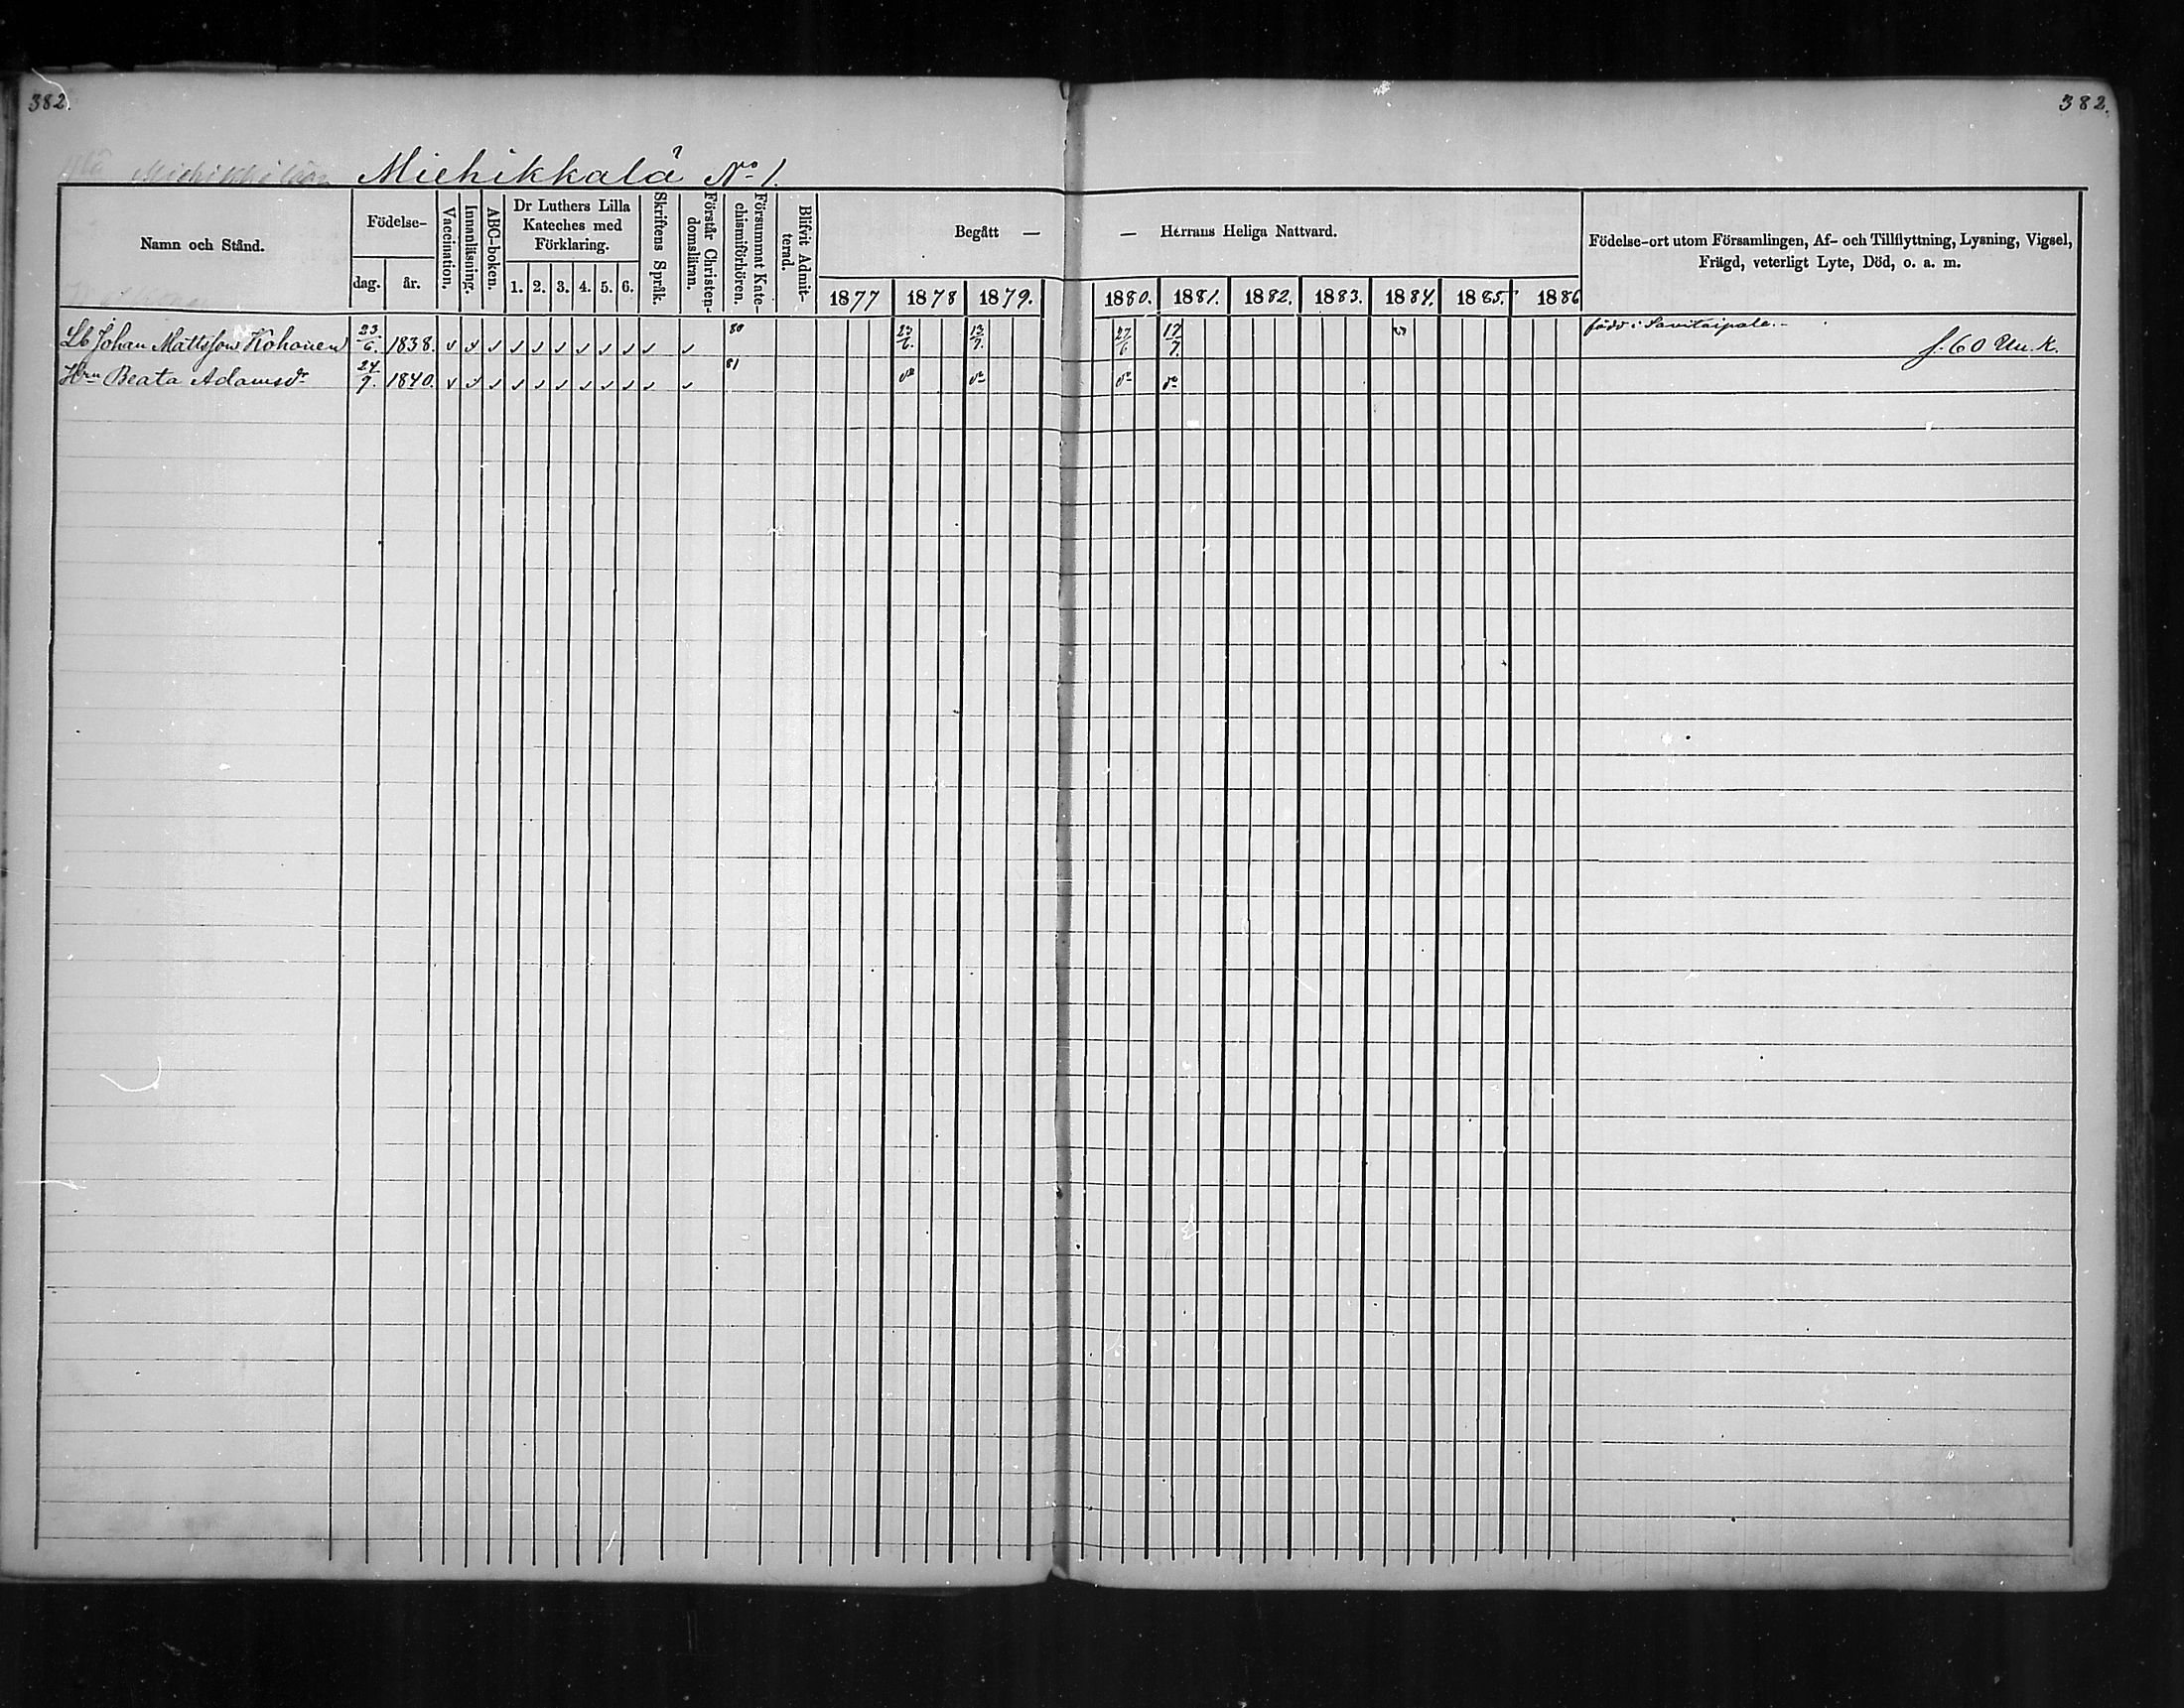 382.
382.
Miehikkälä No 1.
Namn och Stånd.
Födelse-
dag.
år.
Vaccination.
Innanläsning.
ABC-boken.
Dr Luthers Lilla
Kateches med
Förklaring.
1. 2. 3. 4. 5. 6.
Skriftens Språk.
Förstår Christen-
domsläran.
Försummat Kate-
chismiförhören.
Blifvit Admit-
terad.
Begått —
— Herrans Heliga Nattvard.
1877 1878 1879. 1880. 1881. 1882. 1883. 1884. 1885. 1886
Födelse-ort utom Församlingen, Af- och Tillflyttning, Lysning, Vigsel,
Frägd, veterligt Lyte, Död, o. a. m.
Lb Johan Mattsson Kohonen 23/6. 1838. 80 23/6. 13/7. 27/6 17/7. född i Savitaipale.
f. 60 Un. K.
Hrn Beata Adamsdr 24/9. 1840. 81 do do do do